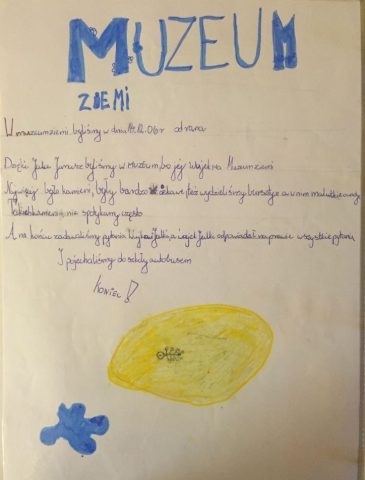 MUZEUM
ZIEMI
W muzeum ziemi byliśmy w dniu 06 r od rana
Dzięki Julce byliśmy w Muzeum, bo jej wujek ma Muzeum ziemi
Najwięcej było kamieni, były bardzo ciekawe, też widzieliśmy bursztyn a w nim malutkie owady
Takich kamieni nie spotykamy często
A na końcu zadawaliśmy pytania wujkowi Julki, a wujek Julki odpowiadał na prawie wszystkie pytania
I pojechaliśmy do szkoły autobusem
KONIEC!